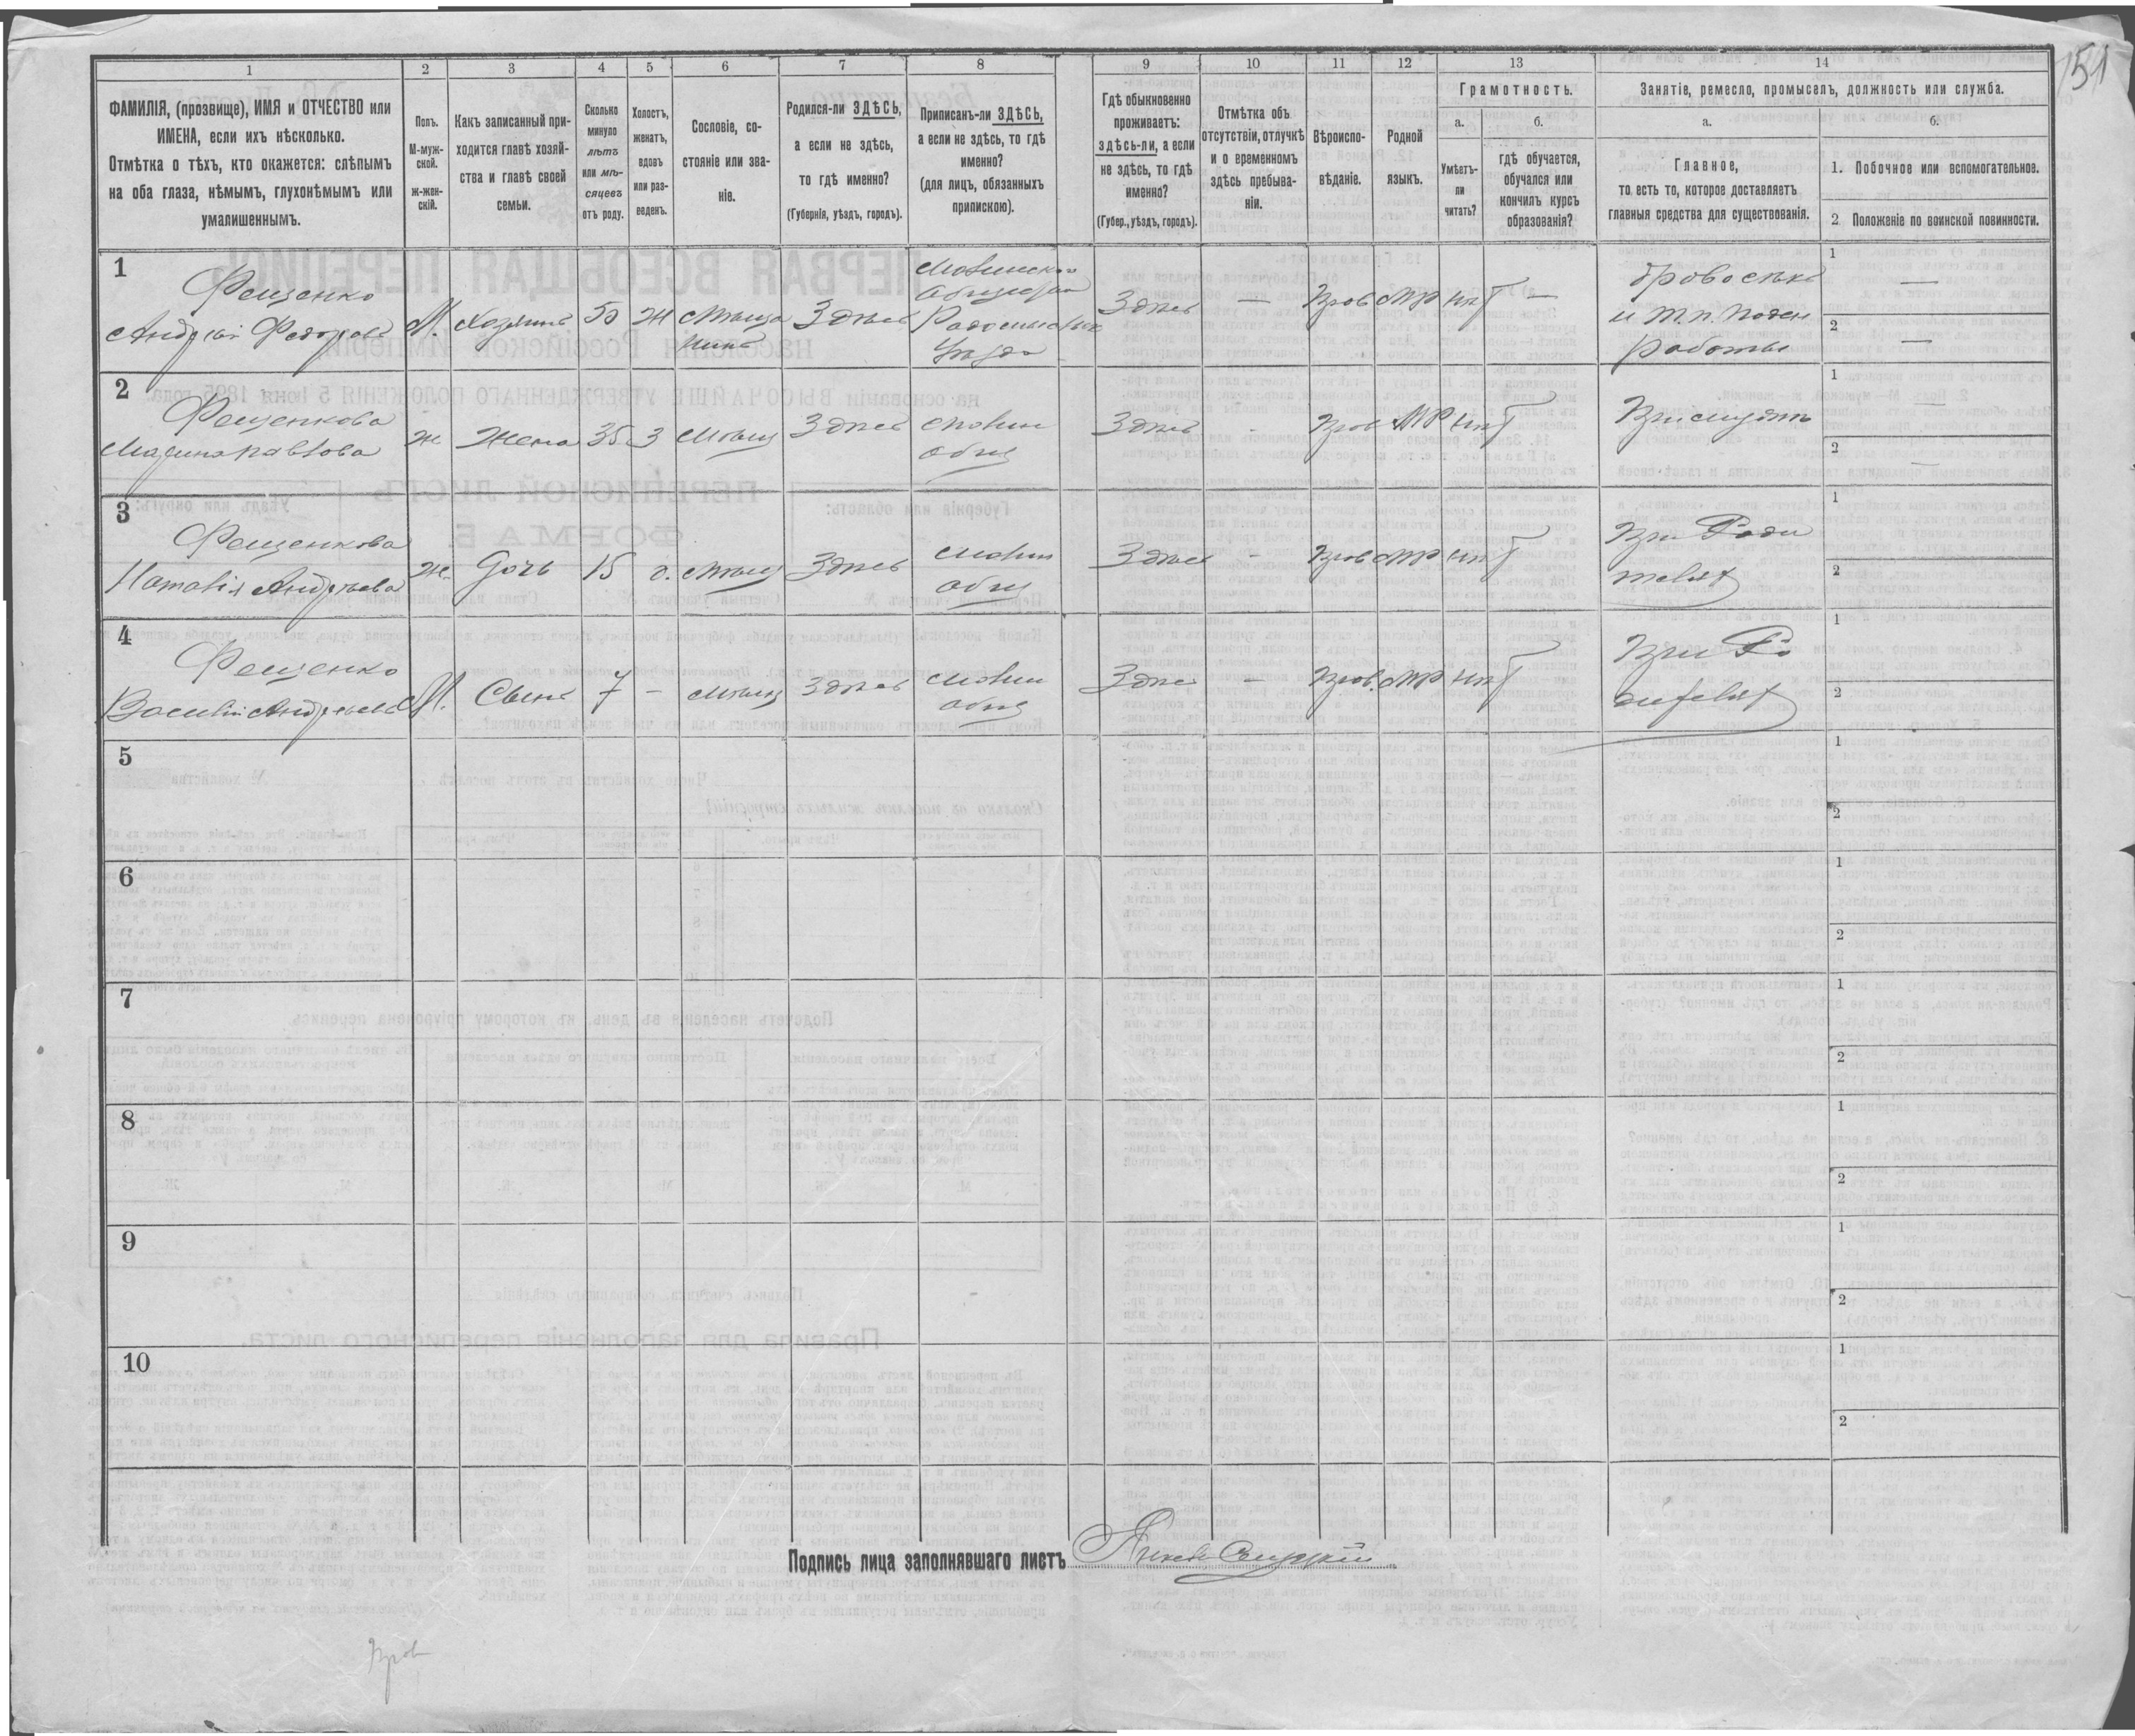 151
1
2
3
4
5
6
7
8
9
10
11
12
13
14
ФАМИЛІЯ, (прозвище), ИМЯ и ОТЧЕСТВО или
ИМЕНА, если ихъ нѣсколько.
Отмѣтка о тѣхъ, кто окажется: слѣпымъ
на оба глаза, нѣмымъ, глухонѣмымъ или
умалишеннымъ.
Полъ.
М-муж-
ской.
ж-жен-
скій.
Какъ записанный при-
ходится главѣ хозяй-
ства и главѣ своей
семьи.
Сколько
минуло
лѣтъ
или мѣ-
сяцевъ
отъ роду.
Холостъ,
женатъ,
вдовъ
или раз-
веденъ.
Сословіе, со-
стояніе или зва-
ніе.
Родился-ли ЗДѢСЬ,
а если не здѣсь,
то гдѣ именно?
(Губернія, уѣздъ, городъ).
Приписанъ-ли ЗДѢСЬ,
а если не здѣсь, то гдѣ
именно?
(для лицъ, обязанныхъ
припискою).
Гдѣ обыкновенно
проживаетъ:
здѣсь-ли, а если
не здѣсь, то гдѣ
именно?
(Губер., уѣздъ, городъ).
Отмѣтка объ
отсутствіи, отлучкѣ
и о временномъ
здѣсь пребыва-
ніи.
Вѣроиспо-
вѣданіе.
Родной
языкъ.
Грамотность.
а.
Умѣетъ-
ли
читать?
б.
гдѣ обучается,
обучался или
кончилъ курсъ
образованія?
Занятіе, ремесло, промыселъ, должность или служба.
а.
Главное,
то есть то, которое доставляетъ
главныя средства для существованія.
б.
1. Побочное или вспомогательное.
2 Положеніе по воинской повинности.
1
Фещенко
Андрей Федоровъ
М.
Хозяинъ
50
Ж
Мѣща
нинъ
Здѣсь
Радомысльск
Уѣзда
Здѣсь
—
Прав
МР
нѣт
—
и т.п. поден
работы
1
—
2
—
2
Фещенкова
Марина Павлова
Ж
Жена
35
З
Мѣщ
Здѣсь
общ
Здѣсь
-
Прав
МР
нѣт
1
—
2
—
3
Фещенкова
Наталія Андреева
Ж.
Дочь
15
д.
Мѣщ
Здѣсь
общ
Здѣсь
-
Прав
МР
нѣт
При Роди
теляхъ
1
2
4
Фещенко
Василій Андреевъ
М.
Сынъ
7
-
Мѣщ
Здѣсь
общ
Здѣсь
-
Прав.
МР
нѣт
При Ро
дителяхъ
1
2
5
1
2
6
1
2
7
1
2
8
1
2
9
1
2
10
1
2
Подпись лица заполнявшаго листъ
Прав